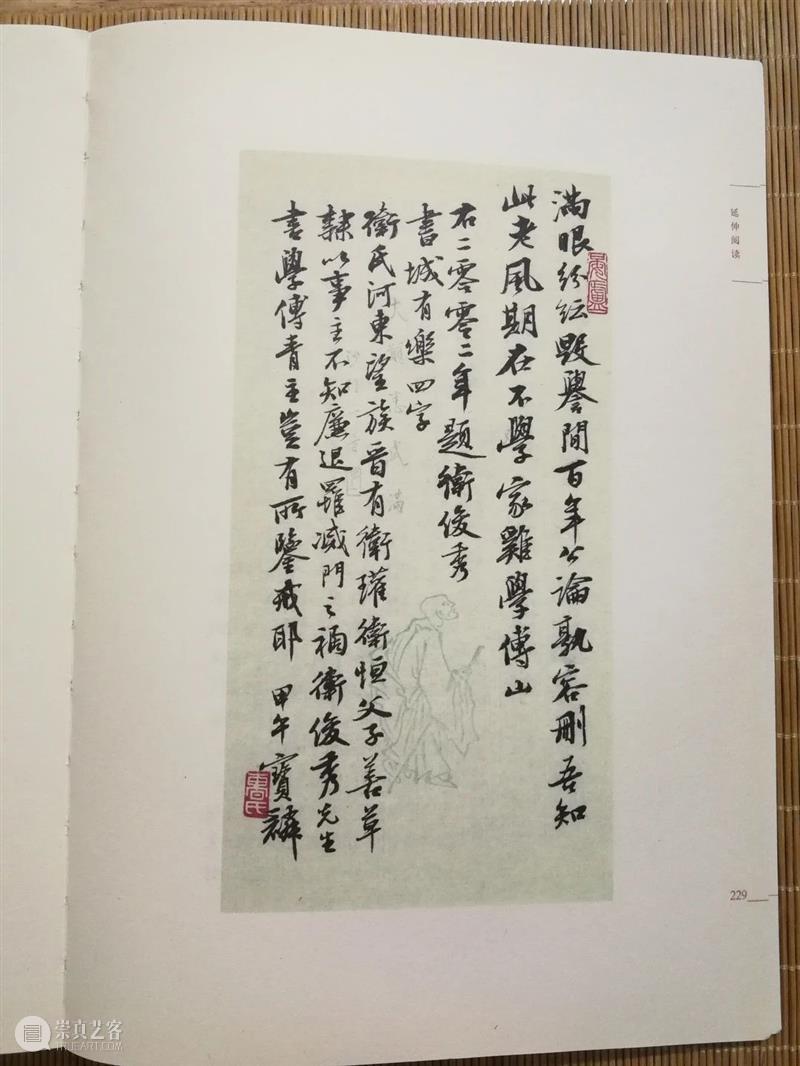 满眼紛紜毀譽間百年公論孰容刪吾知
此老風期在不學家雞學傅山
右二零零二年題衛俊秀
書城有樂四字
衛氏河東望族晉有衛瓘衛恒父子善草
隸以事主不知廉退罹滅門之禍衛俊秀先生
書學傅青主豈有所鑒戒耶 甲午寶麟
延伸阅读
229
崇真艺客